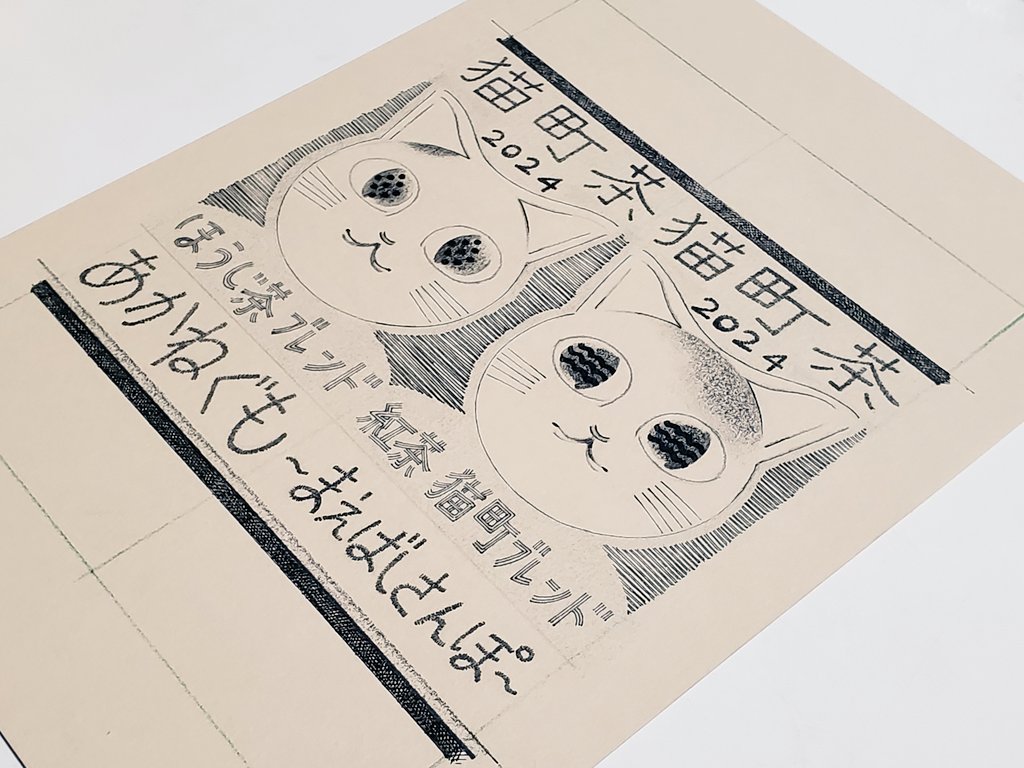 猫町茶 猫町茶
2024 2024
ほうじ茶ブレンド 紅茶 猫町ブレンド
あかねぐも～まえばしさんぽ～